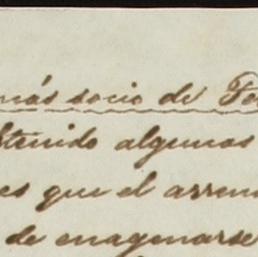 más socio de
tenido algunas
es que el arren
de enagenarse